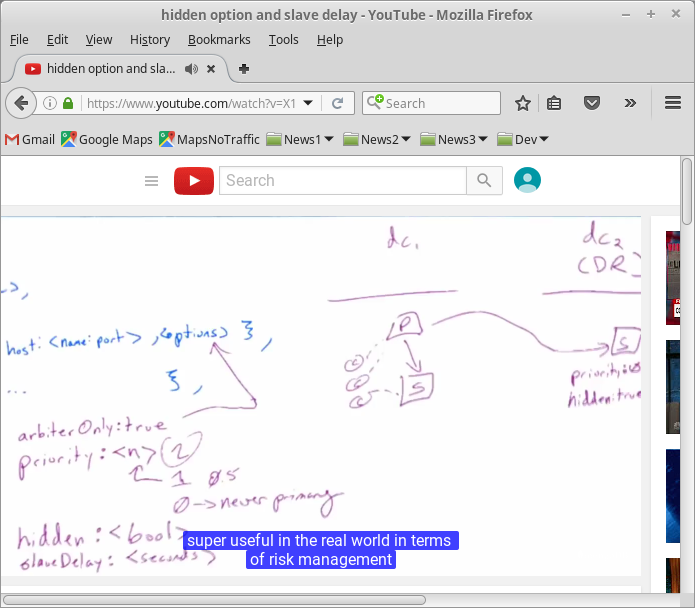 hidden option and slave delay - YouTube - Mozilla Firefox
File Edit View History Bookmarks Tools Help
hidden option and sla...
https://www.youtube.com/watch?v=X1
Search
Gmail Google Maps MapsNoTraffic News1 News2 News3 Dev
Search
dc1
dc2
(DR)
>,
host: <name:port>, <options> },
P
S
c
c
c
S
...
},
priority: 0
hidden: true
arbiterOnly: true
priority: <n> 2
1 0.5
0 -> never primary
hidden: <bool>
slaveDelay: <seconds>
super useful in the real world in terms
of risk management